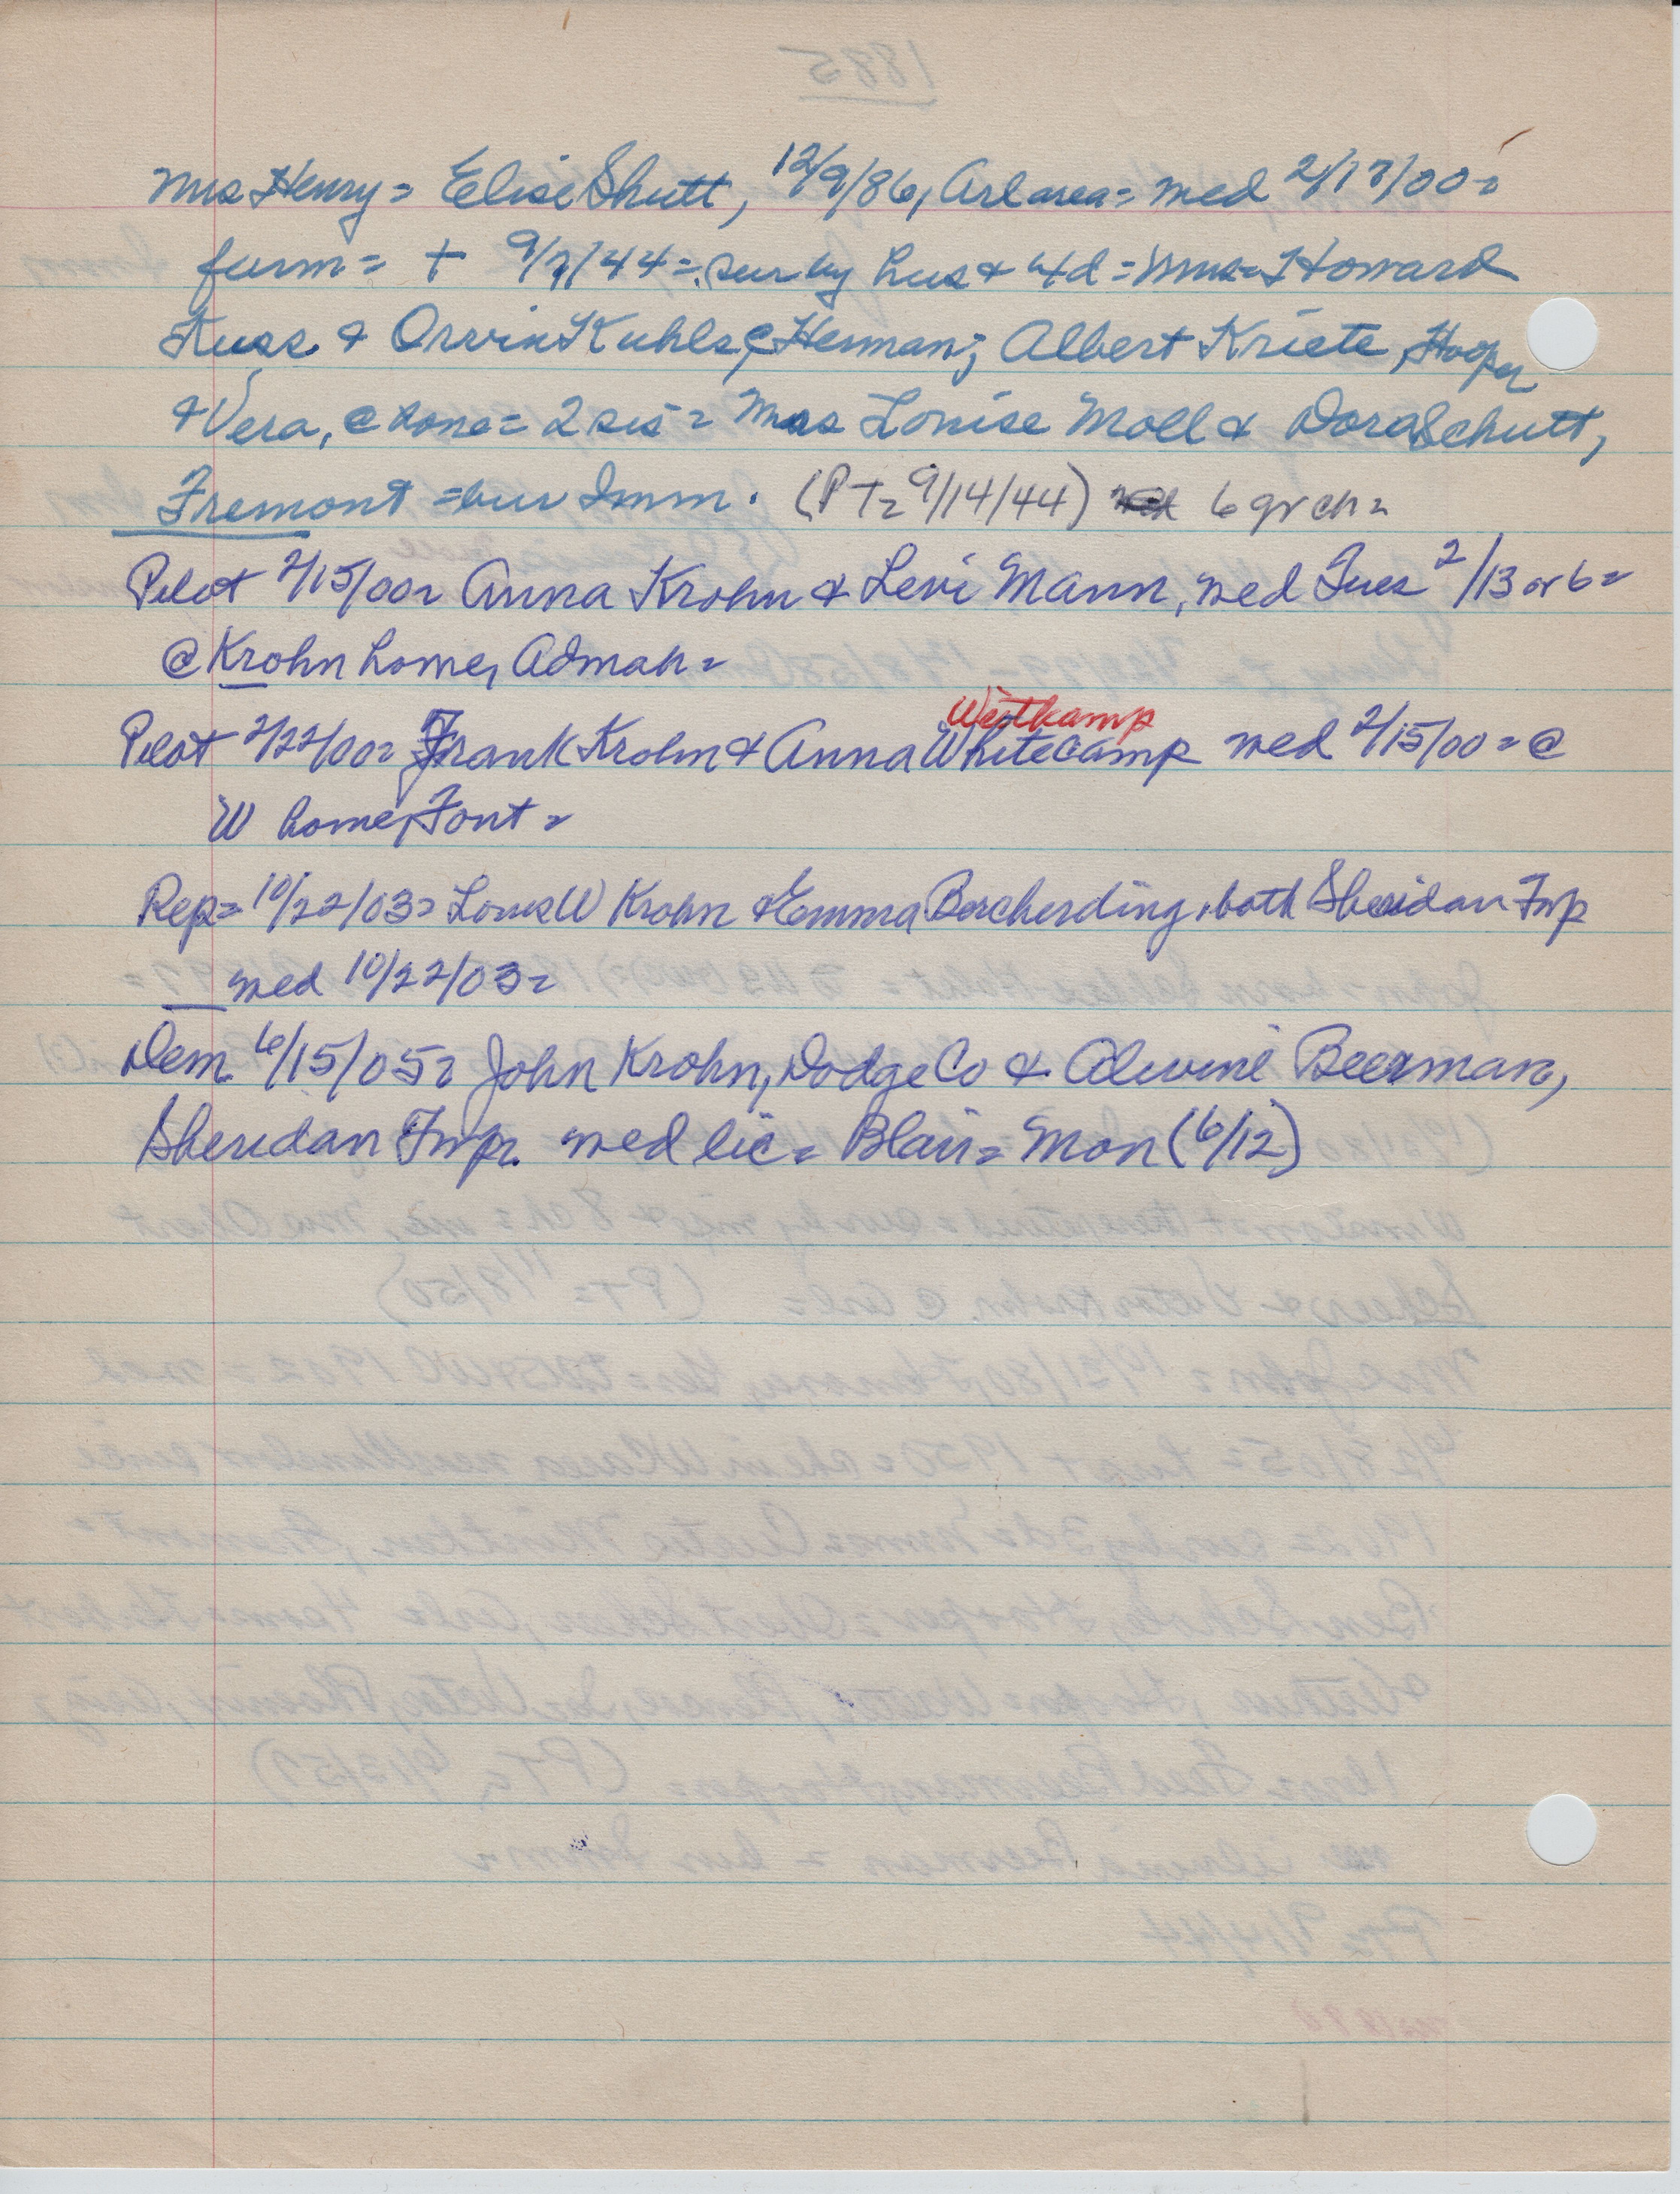 Mrs Henry = Elise Shutt, 12/9/86, Arl area = med 2/17/00 =
farm = + 9/7/44 = sur by hus & 4d = Mmes Howard
Kuss & Orvin Kuhls, @ Herman; Albert Kriete, Hooper
& Vera, @ home = 2 sis = Mrs Louise Moll & Dora Schutt,
Fremont = bur Imm. (PT = 9/14/44) 6 gr ch =
Pilot 2/15/00 = Anna Krohn & Levi Mann, med Tues 2/13 or 6 =
@ Krohn home, Admah =
Westkamp
Pilot 2/22/00 = Frank Krohn & Anna Whitecamp med 2/15/00 = @
W home, Font =
Rep = 10/22/03 = Louis W Krohn & Emma Borcherding, both Sheridan Twp
med 10/22/03 =
Dem 6/15/05 = John Krohn, Dodge Co & Alwine Beerman,
Sheridan Twp. med lic = Blair = Mon (6/12)